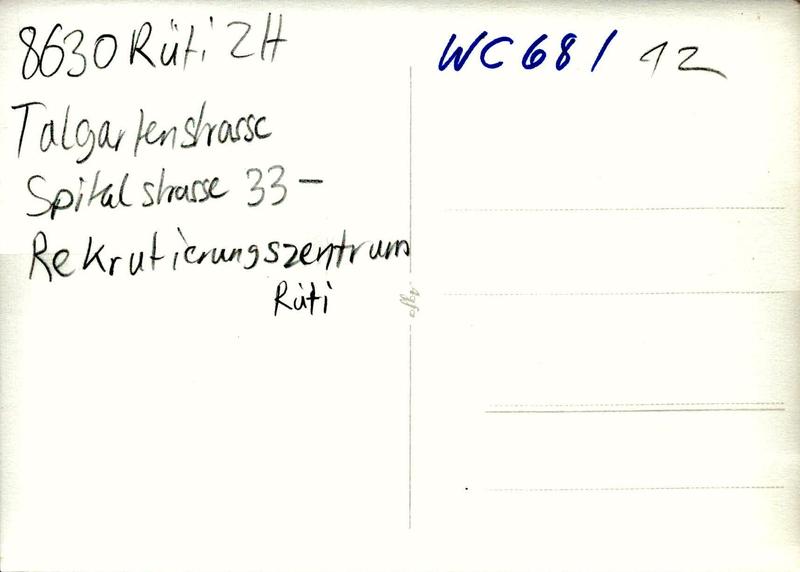 8630 Rüti ZH
Talgartenstrasse
Spitalstrasse 33 –
Rekrutierungszentrum
Rüti
WC 68 / 12
Agfa